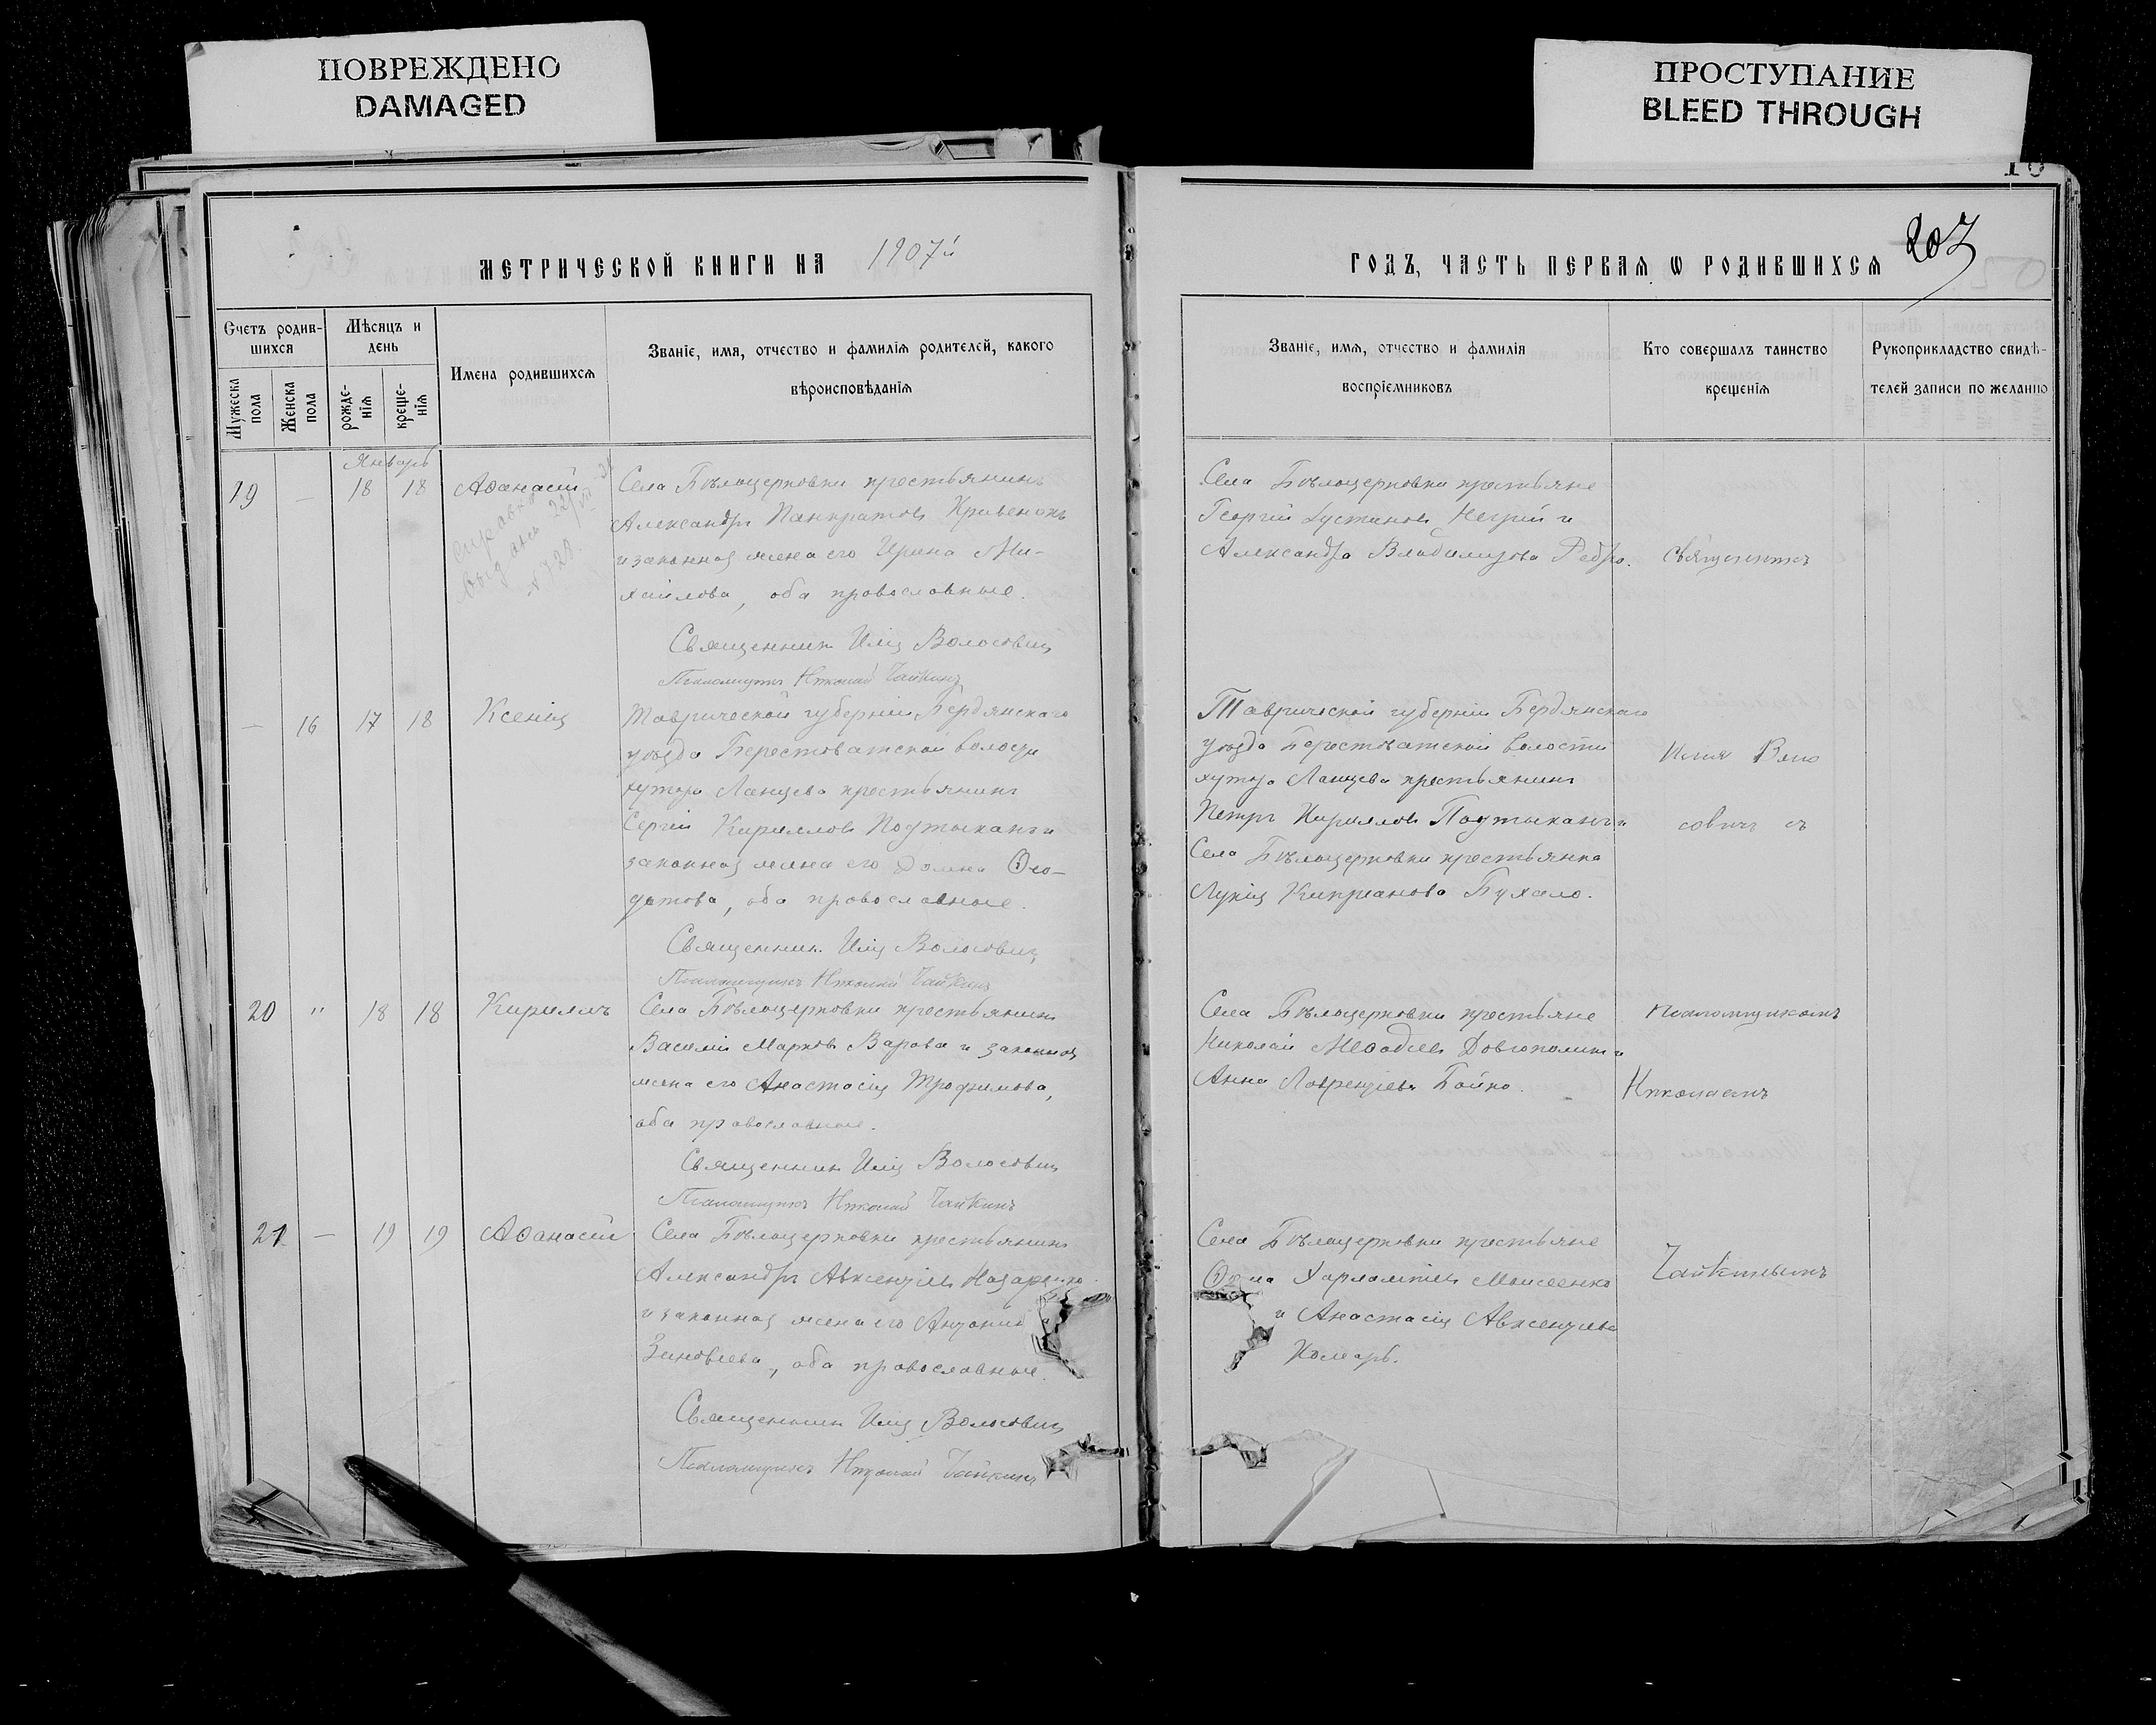 ПОВРЕЖДЕНО
DAMAGED
ПРОСТУПАНИЕ
BLEED THROUGH
МЕТРИЧЕСКОЙ КНИГИ НА 1907й
Счетъ родив-
шихся
Мѣсяцъ и
день
Мужеска
пола
Женска
пола
рожде-
нія
креще-
нія
Имена родившихся
Званіе, имя, отчество и фамилія родителей, какого
вѣроисповѣданія
Январь
19 — 18 18 Аѳанасій
справка
выдана 22/VII
№ 728.
Села Бѣлоцерковки крестьянинъ
Александръ Панкратовъ Кривенокъ
и законная жена его Ирина Ми-
хайлова, оба православные.
Священникъ Илія Волосовичъ
Псаломщикъ Николай Чайкинъ
— 16 17 18 Ксенія
Таврической губерніи Бердянскаго
уѣзда Берестоватской волости
хутора Ланцева крестьянинъ
Сергій Кирилловъ Подтыканъ и
законная жена его Домна Ѳео-
дотова, оба православные.
Священникъ Илія Волосовичъ
Псаломщикъ Николай Чайкинъ
20 " 18 18 Кириллъ
Села Бѣлоцерковки крестьянинъ
Василій Марковъ Варава и законная
жена его Анастасія Трофимова,
оба православные.
Священникъ Илія Волосовичъ
Псаломщикъ Николай Чайкинъ
21 — 19 19 Аѳанасій
Села Бѣлоцерковки крестьянинъ
Александръ Авксентіевъ Назаренко
и законная жена его Антонина
Зиновіева, оба православные.
Священникъ Илія Волосовичъ
Псаломщикъ Николай Чайкинъ
10
207
ГОДЪ, ЧАСТЬ ПЕРВАЯ Ѡ РОДИВШИХСЯ
Званіе, имя, отчество и фамилія
воспріємниковъ
Кто совершалъ таинство
крещенія
Рукоприкладство свидѣ-
телей записи по желанію
Села Бѣлоцерковки крестьяне
Георгій Іустиновъ и
Александра Владимірова Ребро.
Священникъ
Таврической губерніи Бердянскаго
уѣзда Берестоватской волости
хутора Ланцева крестьянинъ
Петръ Кирилловъ Подтыканъ и
Села Бѣлоцерковки крестьянка
Лукія Кипріанова Бухало.
Илія Воло
совичъ съ
Села Бѣлоцерковки крестьяне
Николай Меѳодіевъ Довгополикъ и
Анна Лаврентіева Бойко.
псаломщикомъ
Николаемъ
Села Бѣлоцерковки крестьяне
Ѳома Харлампіевъ Моисеенко
и Анастасія Авксентіева
Комарь.
Чайкинымъ